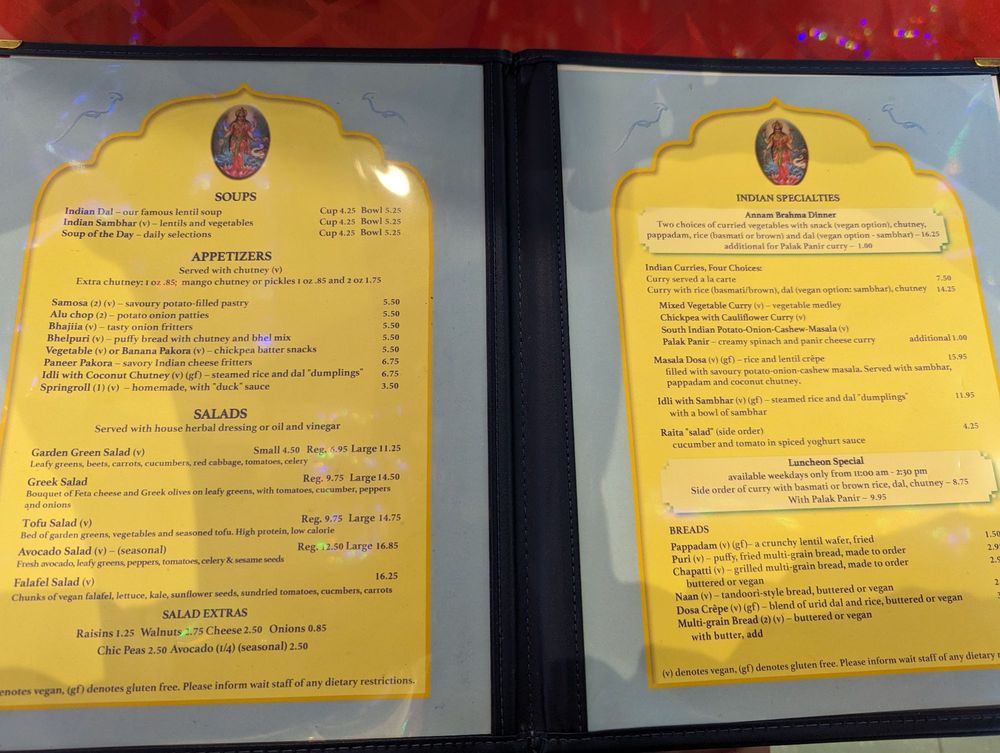 SOUPS
Indian Dal – our famous lentil soup Cup 4.25 Bowl 5.25
Indian Sambhar (v) – lentils and vegetables Cup 4.25 Bowl 5.25
Soup of the Day – daily selections Cup 4.25 Bowl 5.25
APPETIZERS
Served with chutney (v)
Extra chutney: 1 oz .85; mango chutney or pickles 1 oz .85 and 2 oz 1.75
Samosa (2) (v) – savoury potato-filled pastry 5.50
Alu chop (2) – potato onion patties 5.50
Bhajiia (v) – tasty onion fritters 5.50
Bhelpuri (v) – puffy bread with chutney and bhel mix 5.50
Vegetable (v) or Banana Pakora (v) – chickpea batter snacks 5.50
Paneer Pakora – savory Indian cheese fritters 6.75
Idli with Coconut Chutney (v) (gf) – steamed rice and dal "dumplings" 6.75
Springroll (1) (v) – homemade, with "duck" sauce 3.50
SALADS
Served with house herbal dressing or oil and vinegar
Garden Green Salad (v) Small 4.50 Reg. 6.95 Large 11.25
Leafy greens, beets, carrots, cucumbers, red cabbage, tomatoes, celery
Greek Salad Reg. 9.75 Large 14.50
Bouquet of Feta cheese and Greek olives on leafy greens, with tomatoes, cucumber, peppers
and onions
Tofu Salad (v) Reg. 9.75 Large 14.75
Bed of garden greens, vegetables and seasoned tofu. High protein, low calorie
Avocado Salad (v) – (seasonal) Reg. 12.50 Large 16.85
Fresh avocado, leafy greens, peppers, tomatoes, celery & sesame seeds
Falafel Salad (v) 16.25
Chunks of vegan falafel, lettuce, kale, sunflower seeds, sundried tomatoes, cucumbers, carrots
SALAD EXTRAS
Raisins 1.25 Walnuts 2.75 Cheese 2.50 Onions 0.85
Chic Peas 2.50 Avocado (1/4) (seasonal) 2.50
enotes vegan, (gf) denotes gluten free. Please inform wait staff of any dietary restrictions.
INDIAN SPECIALTIES
Annam Brahma Dinner
Two choices of curried vegetables with snack (vegan option), chutney,
pappadam, rice (basmati or brown) and dal (vegan option - sambhar) – 16.25
additional for Palak Panir curry – 1.00
Indian Curries, Four Choices:
Curry served a la carte 7.50
Curry with rice (basmati/brown), dal (vegan option: sambhar), chutney 14.25
Mixed Vegetable Curry (v) – vegetable medley
Chickpea with Cauliflower Curry (v)
South Indian Potato-Onion-Cashew-Masala (v)
Palak Panir – creamy spinach and panir cheese curry additional 1.00
Masala Dosa (v) (gf) – rice and lentil crêpe 15.95
filled with savoury potato-onion-cashew masala. Served with sambhar,
pappadam and coconut chutney.
Idli with Sambhar (v) (gf) – steamed rice and dal "dumplings" 11.95
with a bowl of sambhar
Raita "salad" (side order) 4.25
cucumber and tomato in spiced yoghurt sauce
Luncheon Special
available weekdays only from 11:00 am - 2:30 pm
Side order of curry with basmati or brown rice, dal, chutney – 8.75
With Palak Panir – 9.95
BREADS
Pappadam (v) (gf)– a crunchy lentil wafer, fried 1.50
Puri (v) – puffy, fried multi-grain bread, made to order 2.9
Chapatti (v) – grilled multi-grain bread, made to order 2.9
buttered or vegan
Naan (v) – tandoori-style bread, buttered or vegan 2.
Dosa Crêpe (v) (gf) – blend of urid dal and rice, buttered or vegan
Multi-grain Bread (2) (v) – buttered or vegan
with butter, add
(v) denotes vegan, (gf) denotes gluten free. Please inform wait staff of any dietary r